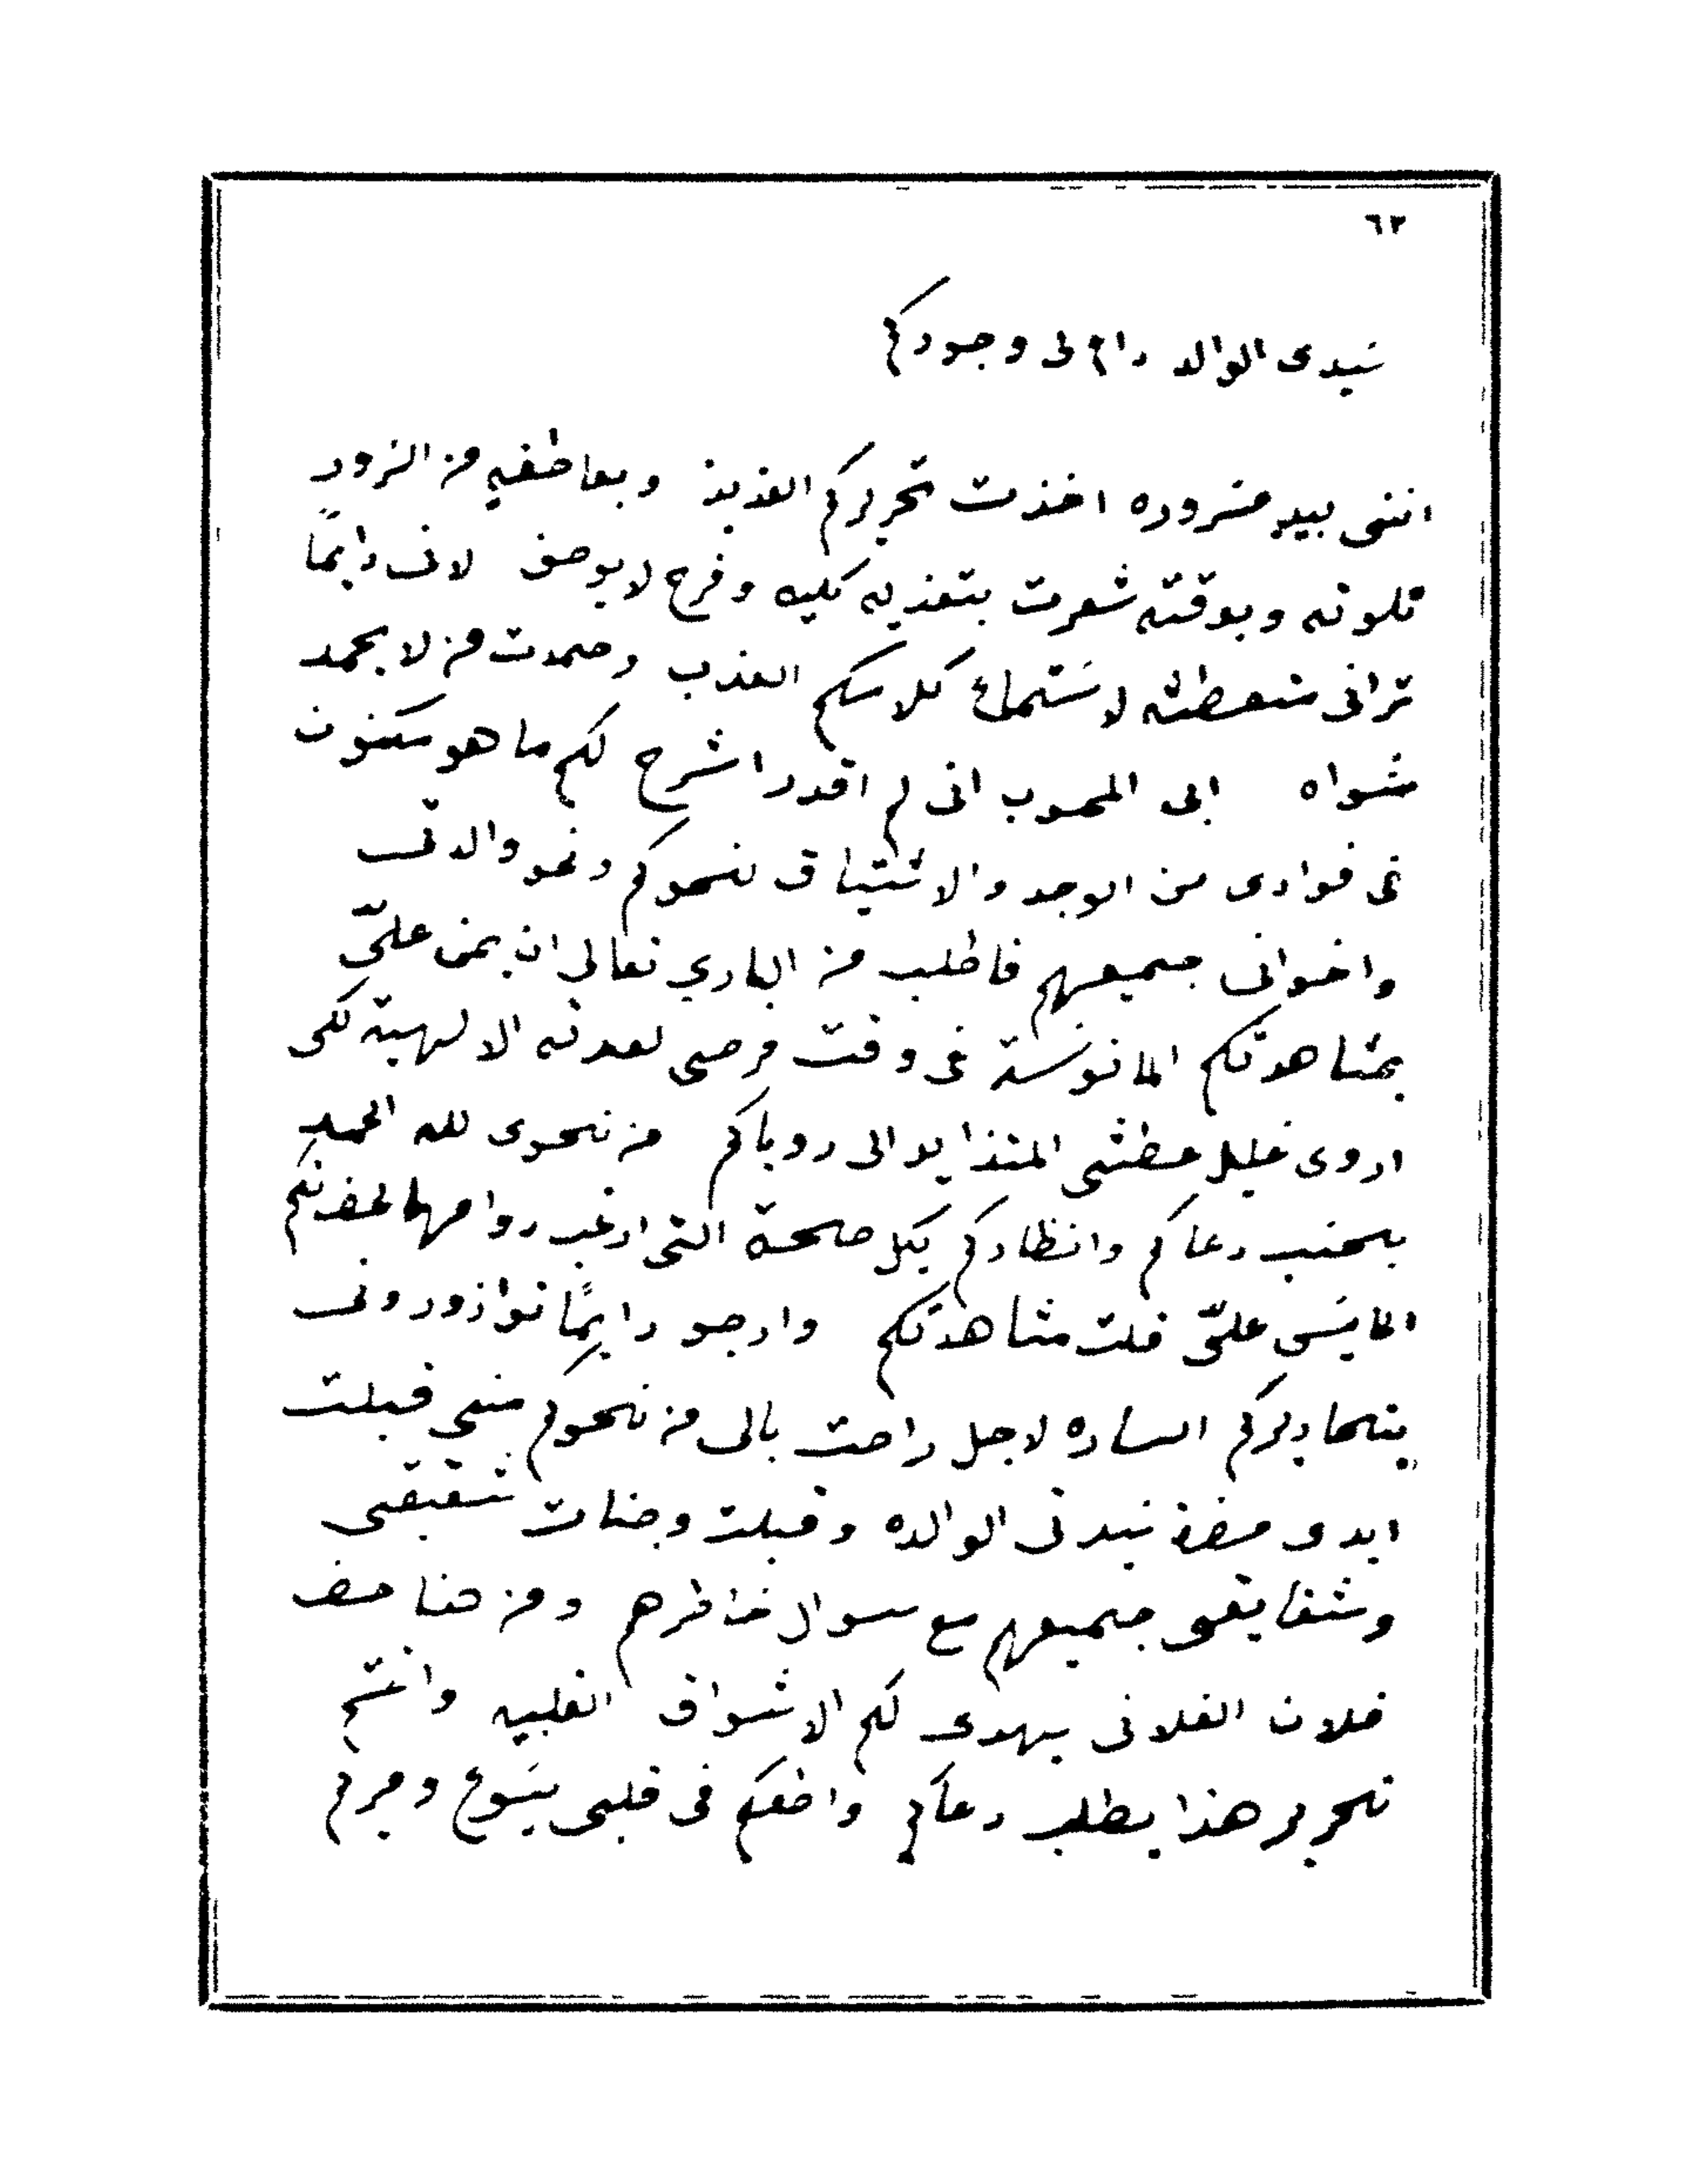 ٦٢
سيدى الوالد دام لى وجودكم
اننى بيد مسروره اخذت تحريركم العذيذ وبعاطفه من السرور
تلوته وبوقته شعرت بتعذيه كليه وفرح لا يوصف لانى دايماً
ترانى متعطش لاستماع كلامكم العذب وحمدت من لا يحمد
سواه ابى المحبوب انى لم اقدر اشرح لكم ما هو مكنون
فى فوادى من الوجد والاشتياق نحوكم ونحو والدتى
واخوانى جميعهم فاطلب من البارى تعالى ان يمن علىّ
بمشاهدتكم المانوسة فى وقت مرضى لعدته الالهية لكى
اروى غليل عطشى المتذايد الى روياكم من نحوى لله الحمد
بحسب دعاكم وانظاركم بكل صحة التى ارغب دوامها لحضرتكم
علىّ قلت مشاهدتكم وارجو دايماً توازرونى
بتحاريركم الساره لاجل راحت بالى من نحوكم منى قبلت
ايدى حضرة سيدتى الوالده وقبلت وجنات شقيقى
وشقايقى جميعهم مع سوال خاطرهم ومن هنا حضرة
فلان الفلانى يهدى لكم الاشواق القلبيه وانتم
تحرير هذا بطلب دعاكم واضعكم فى قلبى يسوع ومريم